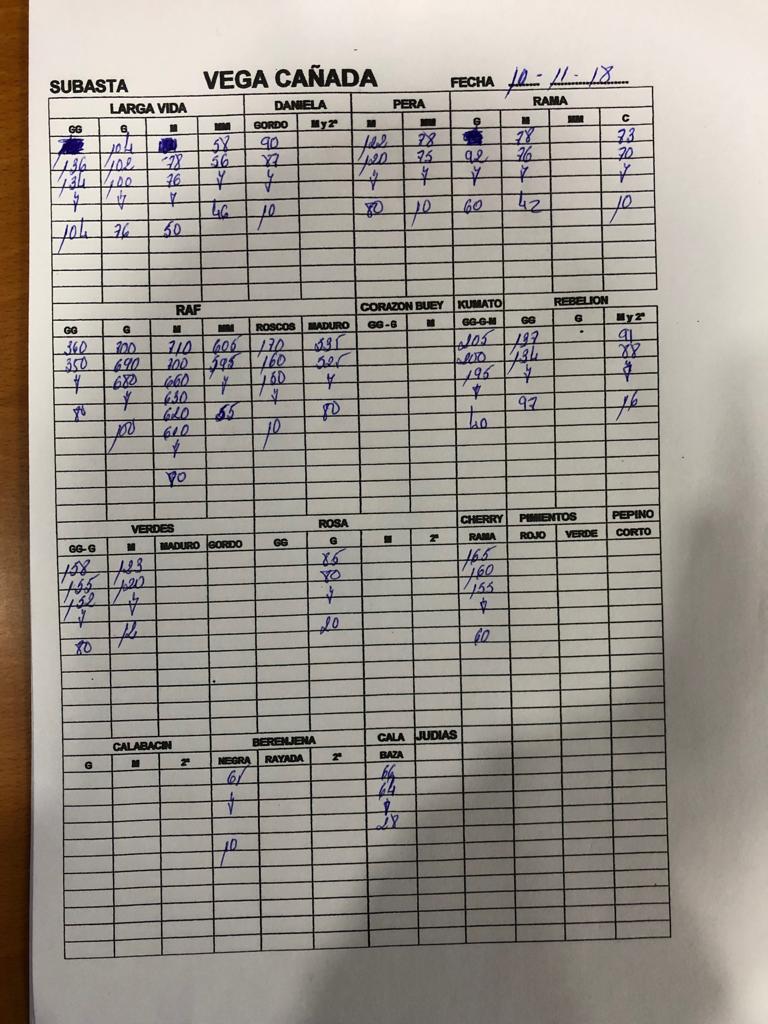 SUBASTA VEGA CAÑADA FECHA 10-11-18
LARGA VIDA DANIELA PERA RAMA
GG G M MM GORDO M y 2ª M MM G M MM C
104 58 90 122 78 78 73
136 102 78 56 87 120 75 92 76 70
134 100 76
46 10 80 10 60 42 10
104 76 50
RAF CORAZON BUEY KUMATO REBELION
GG G M MM ROSCOS MADURO GG - G M GG-G-M GG G M y 2ª
360 700 710 605 170 535 205 137 91
350 690 700 595 160 525 200 134 88
680 660 150 195
630
80 620 55 80 97 16
100 610 10 40
80
VERDES ROSA CHERRY PIMIENTOS PEPINO
GG- G M MADURO GORDO GG G M 2ª RAMA ROJO VERDE CORTO
158 123 85 165
155 120 80 160
152 155
12 20
80 60
CALABACIN BERENJENA CALA JUDIAS
G M 2ª NEGRA RAYADA 2ª BAZA
61 66
64
28
10